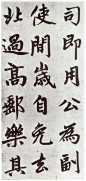 司即用公為副
使間歲自免去
北過高郵樂其